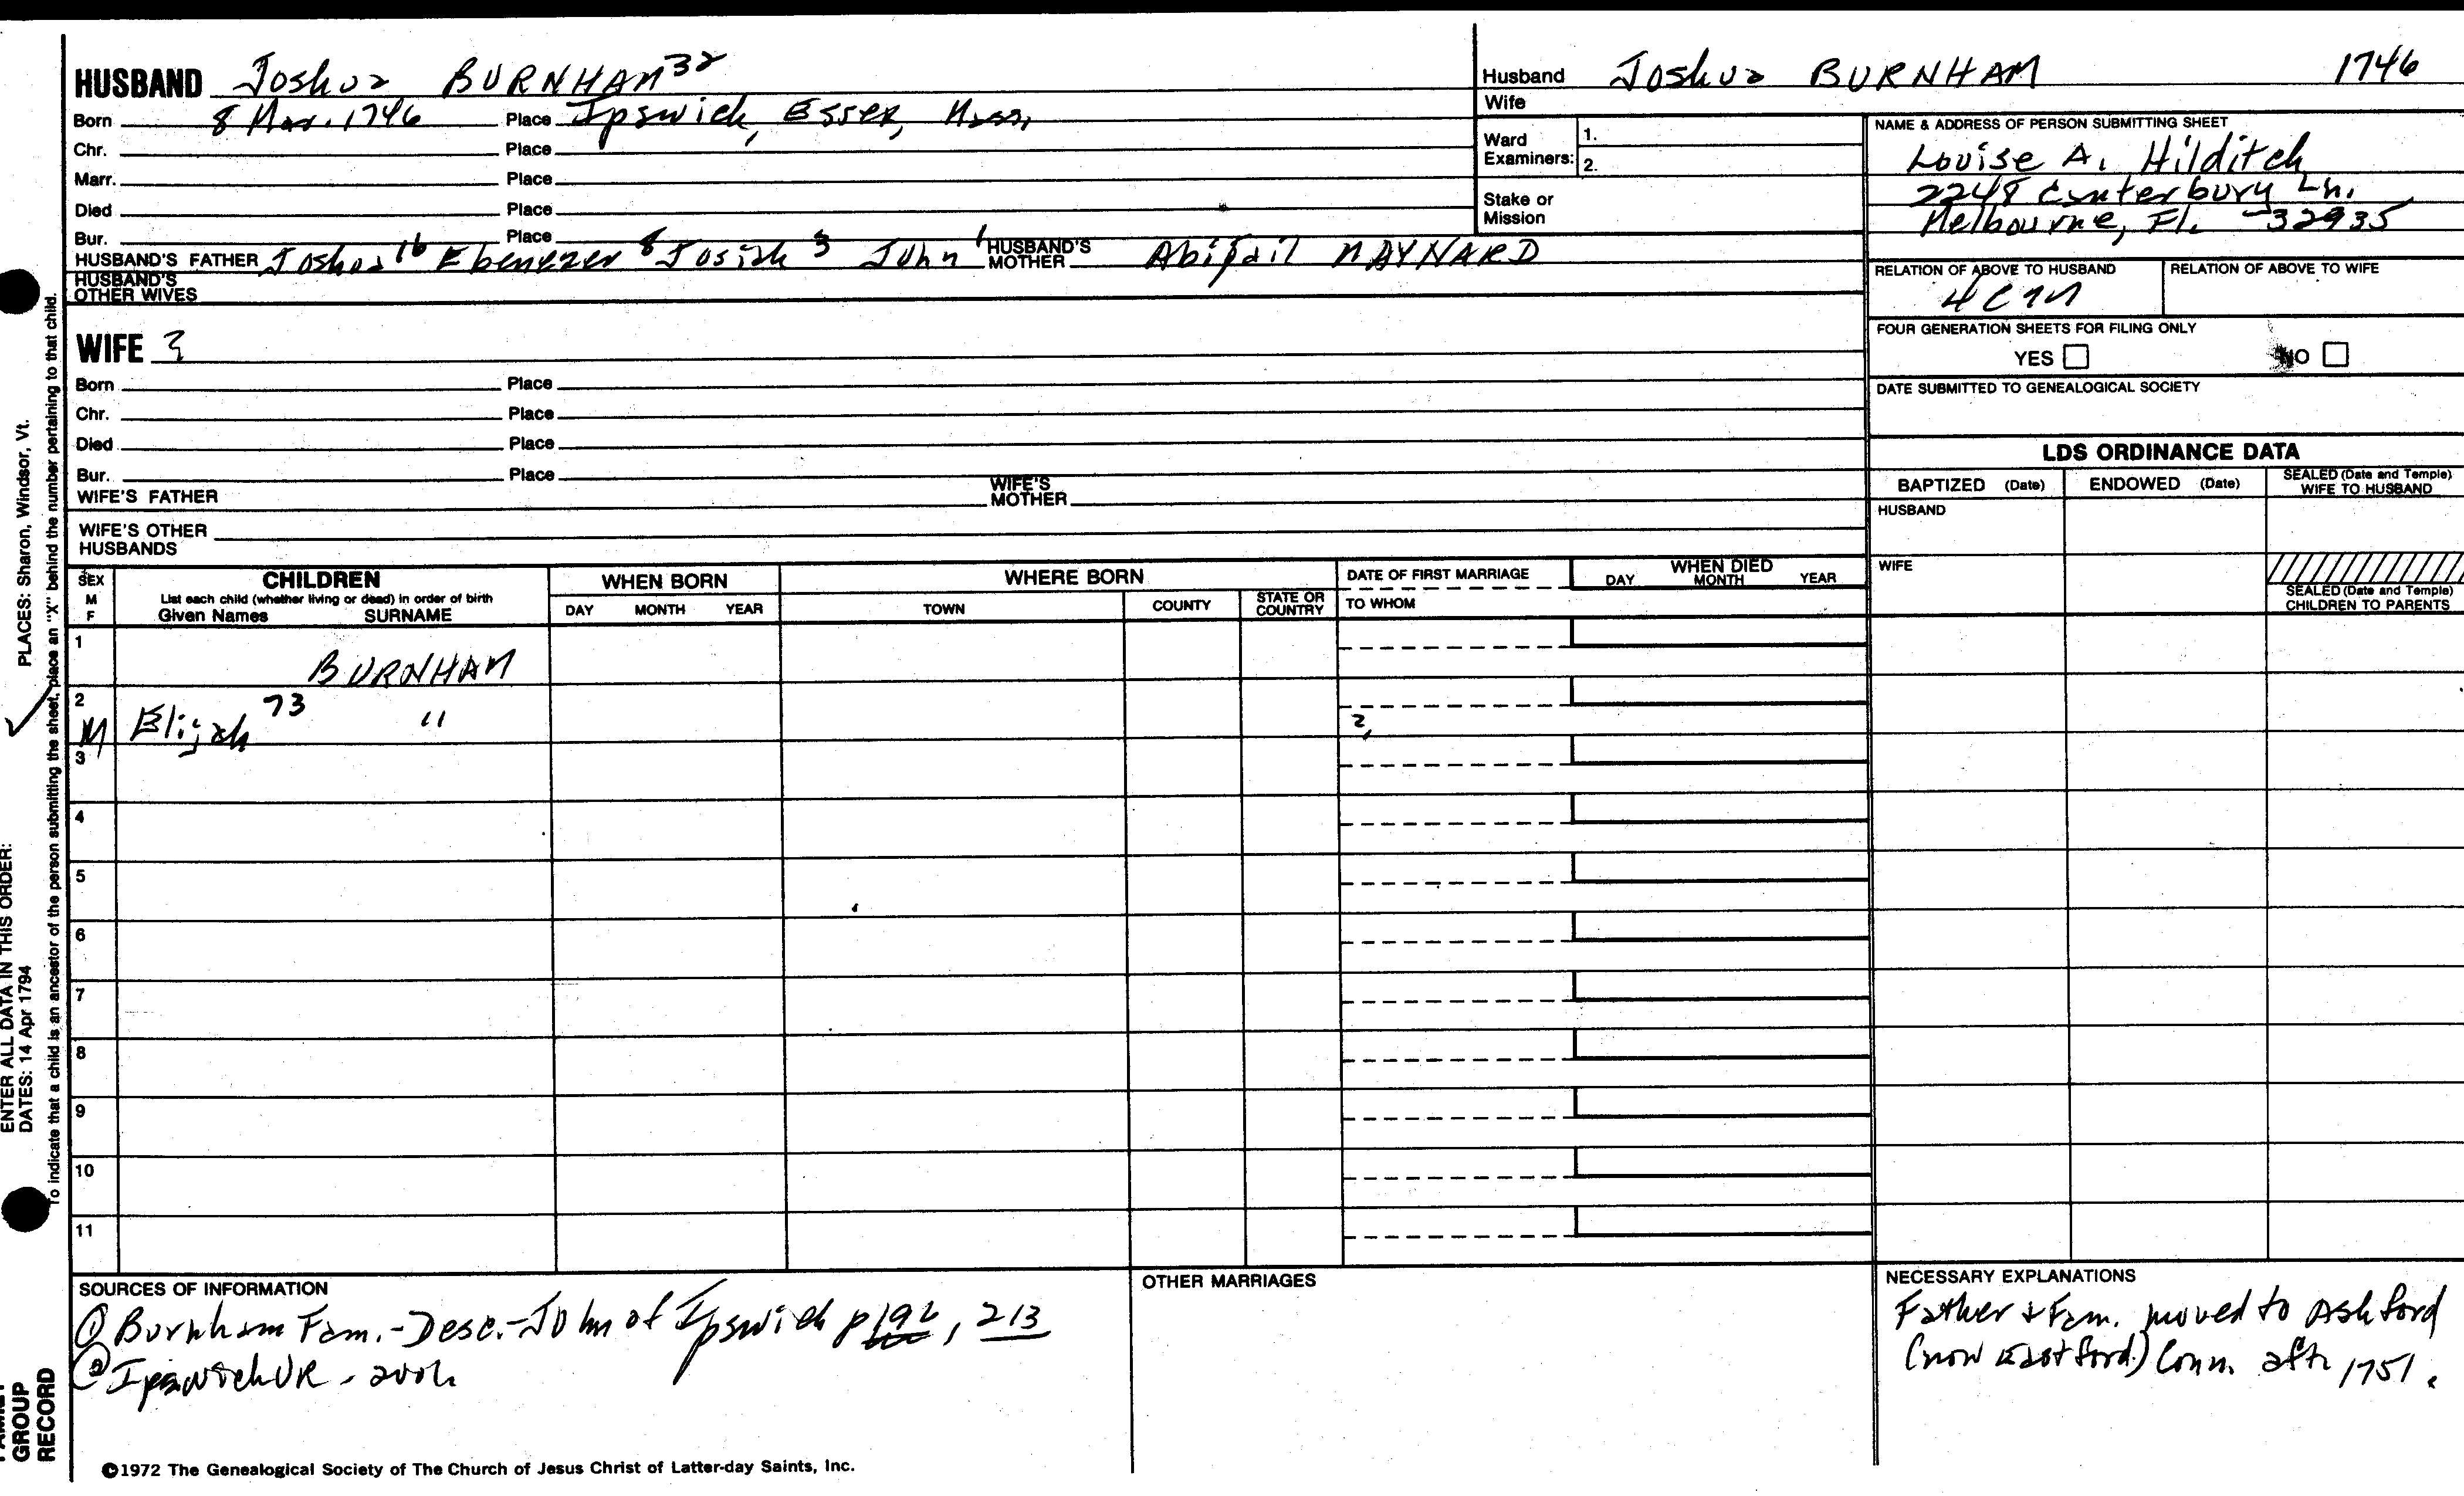 HUSBAND Joshua BURNHAM 32
Born 8 Mar. 1746 Place Ipswich, Essex, Mass,
Chr. Place
Marr. Place
Died Place
Bur. Place
HUSBAND'S FATHER Joshua 16 Ebenezer 8 Josiah 3 John 1 HUSBAND'S MOTHER Abigail MAYNARD
HUSBAND'S OTHER WIVES
WIFE ?
Born Place
Chr. Place
Died Place
Bur. Place
WIFE'S FATHER WIFE'S MOTHER
WIFE'S OTHER HUSBANDS
Husband Joshua BURNHAM 1746
Wife
Ward Examiners: 1.
2.
Stake or Mission
NAME & ADDRESS OF PERSON SUBMITTING SHEET
Louise A. Hilditch
2248 Canterbury Ln.
Melbourne, Fl. -32935
RELATION OF ABOVE TO HUSBAND RELATION OF ABOVE TO WIFE
FOUR GENERATION SHEETS FOR FILING ONLY
YES NO
DATE SUBMITTED TO GENEALOGICAL SOCIETY
LDS ORDINANCE DATA
BAPTIZED (Date) ENDOWED (Date) SEALED (Date and Temple) WIFE TO HUSBAND
HUSBAND
WIFE
SEALED (Date and Temple) CHILDREN TO PARENTS
SEX M F CHILDREN WHEN BORN WHERE BORN DATE OF FIRST MARRIAGE WHEN DIED
List each child (whether living or dead) in order of birth
Given Names SURNAME DAY MONTH YEAR TOWN COUNTY STATE OR COUNTRY TO WHOM DAY MONTH YEAR
1 BURNHAM
2 M Elijah 73 " ?
3
4
5
6
7
8
9
10
11
SOURCES OF INFORMATION
① Burnham Fam.-Desc.-John of Ipswich p 196, 213
② Ipswich VR -
OTHER MARRIAGES
NECESSARY EXPLANATIONS
Father & Fam. moved to Ashford
(now Eastford) Conn. aft. 1751.
©1972 The Genealogical Society of The Church of Jesus Christ of Latter-day Saints, Inc.
PLACES: Sharon, Windsor, Vt.
ENTER ALL DATA IN THIS ORDER:
DATES: 14 Apr 1794
To indicate that a child is an ancestor of the person submitting the sheet, place an "X" behind the number pertaining to that child.
FAMILY GROUP RECORD